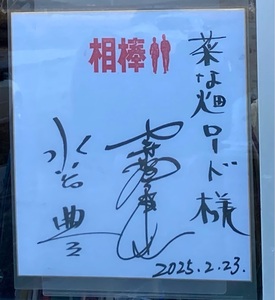 相棒
菜な畑ロード様
水谷豊
2025.2.23.